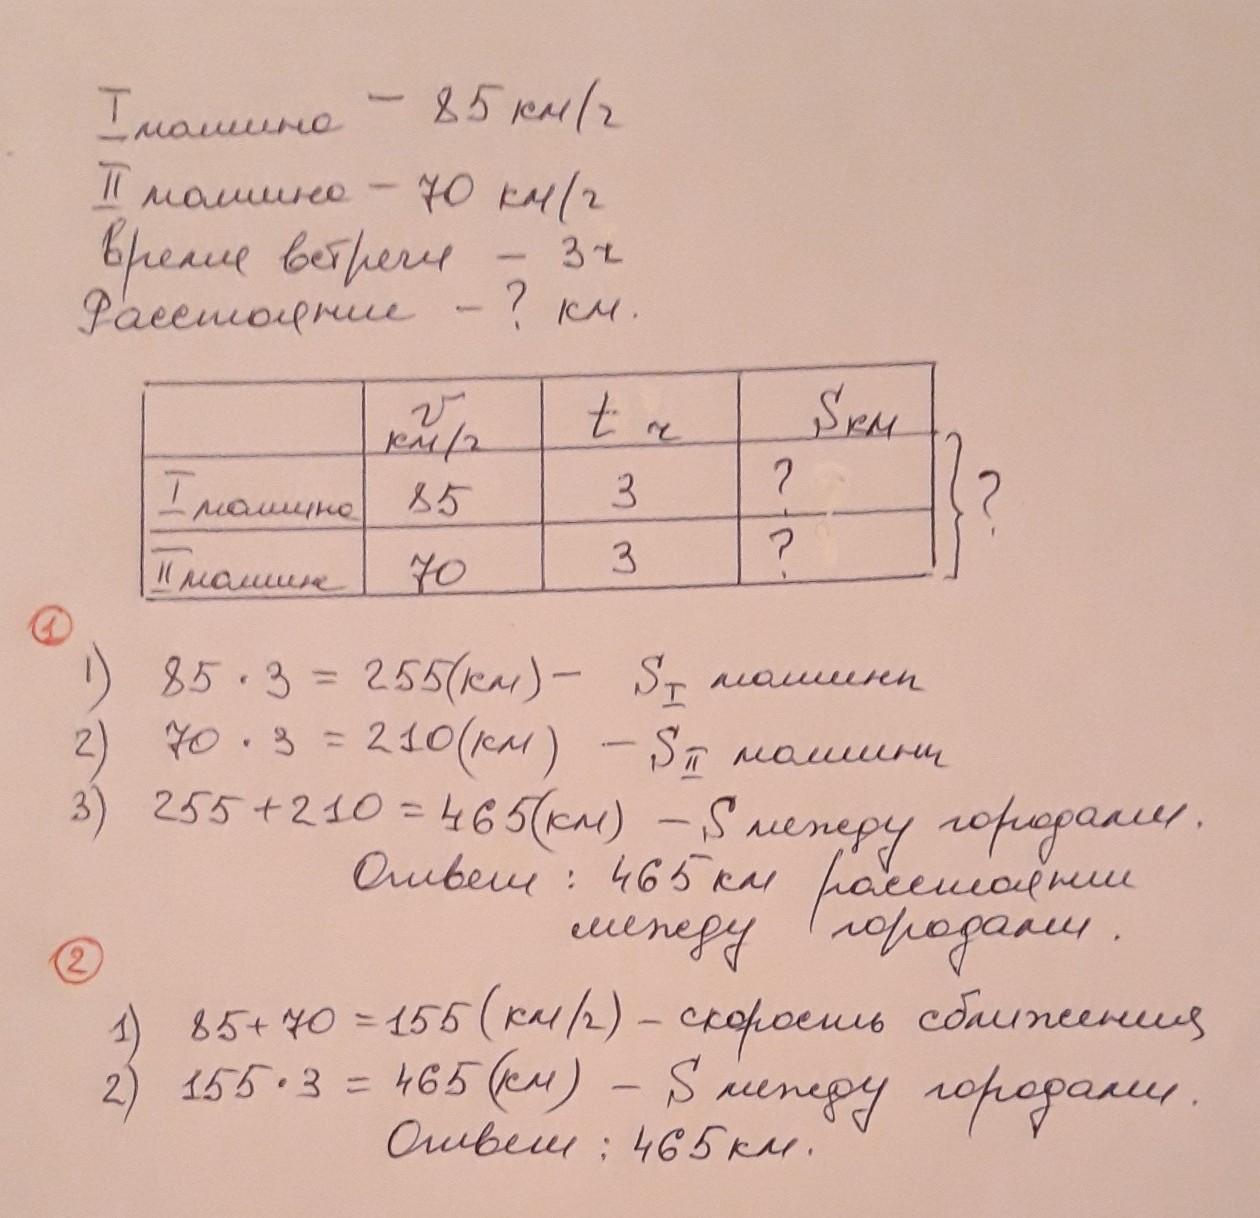 I машина – 85 км/ч
II машина – 70 км/ч
Время встречи – 3ч
Расстояние – ? км.
v км/ч t ч S км
I машина 85 3 ? } ?
II машин 70 3 ?
1
1) 85 · 3 = 255(км) – S I машины
2) 70 · 3 = 210(км) – S II машины
3) 255 + 210 = 465(км) – S между городами.
Ответ : 465 км расстоянии
между городами.
2
1) 85 + 70 = 155 (км/ч) – скорость сближения
2) 155 · 3 = 465 (км) – S между городами.
Ответ : 465 км.